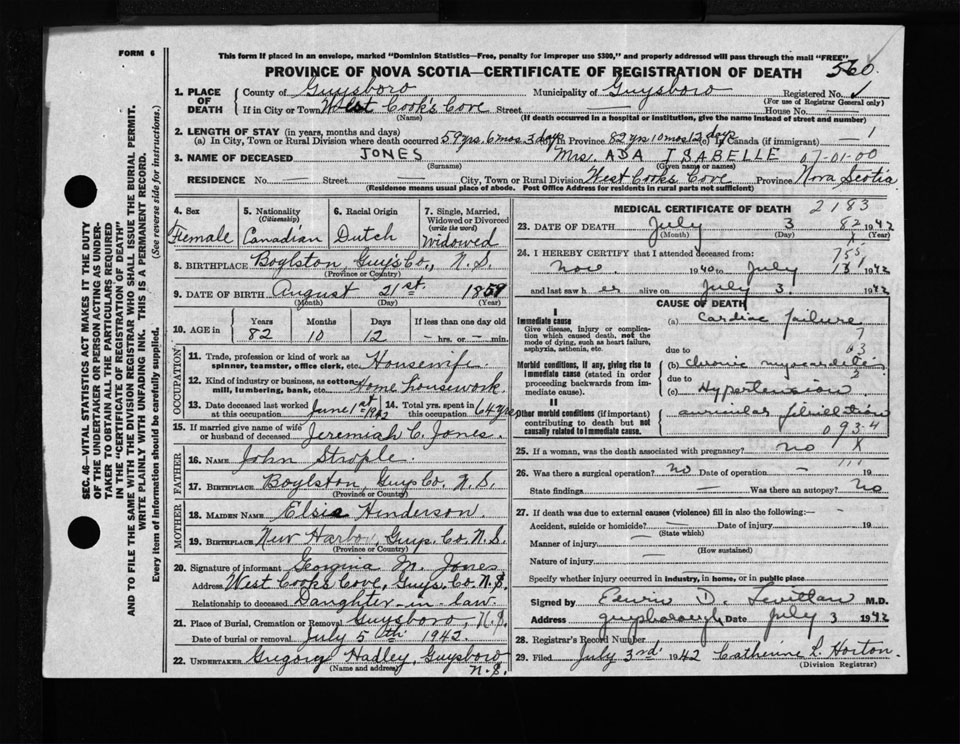 FORM 6
This form if placed in an envelope, marked "Dominion Statistics—Free, penalty for improper use $300," and properly addressed will pass through the mail "FREE"
PROVINCE OF NOVA SCOTIA—CERTIFICATE OF REGISTRATION OF DEATH 560
1. PLACE OF DEATH County of Guysboro Municipality of Guysboro Registered No.
(For use of Registrar General only)
If in City or Town West Cook's Cove Street — House No. —
(Name) (If death occurred in a hospital or institution, give the name instead of street and number)
2. LENGTH OF STAY (in years, months and days)
(a) In City, Town or Rural Division where death occurred 59 yrs. 6 mos. 3 days in Province 82 yrs 10 mos 12 days in Canada (if immigrant) 1
3. NAME OF DECEASED JONES Mrs. ADA ISABELLE 07-01-00
(Surname) (Given name or names)
RESIDENCE No. — Street — City, Town or Rural Division West Cooks Cove Province Nova Scotia
(Residence means usual place of abode. Post Office Address for residents in rural parts not sufficient)
4. Sex Female
5. Nationality (Citizenship) Canadian
6. Racial Origin Dutch
7. Single, Married, Widowed or Divorced (write the word) Widowed
8. BIRTHPLACE Boylston, Guys Co., N.S.
(Province or Country)
9. DATE OF BIRTH August 21st. 1859
(Month) (Day) (Year)
10. AGE in Years 82 Months 10 Days 12 If less than one day old — hrs. or — min.
OCCUPATION
11. Trade, profession or kind of work as spinner, teamster, office clerk, etc. Housewife.
12. Kind of industry or business, as cotton mill, lumbering, bank, etc. Home housework.
13. Date deceased last worked at this occupation June 1st 1942 14. Total yrs. spent in this occupation 64 yrs
15. If married give name of wife or husband of deceased Jeremiah C. Jones.
FATHER
16. NAME John Strople.
17. BIRTHPLACE Boylston, Guys Co. N.S.
(Province or Country)
MOTHER
18. MAIDEN NAME Elsie Henderson.
19. BIRTHPLACE New Harbor, Guys. Co. N.S.
(Province or Country)
20. Signature of informant Georgina M. Jones
Address West Cooks Cove, Guys. Co. N.S.
Relationship to deceased Daughter-in-law.
21. Place of Burial, Cremation or Removal Guysboro, N.S.
Date of burial or removal July 5th 1942.
22. UNDERTAKER Gregory Hadley, Guysboro N.S.
(Name and address)
MEDICAL CERTIFICATE OF DEATH 2183
23. DATE OF DEATH July 3 82 1942
(Month) (Day) (Year)
24. I HEREBY CERTIFY that I attended deceased from:
Nov. 1940 to July 1942
and last saw her alive on July 3. 1942
CAUSE OF DEATH
I
Immediate cause
Give disease, injury or complication which caused death, not the mode of dying, such as heart failure, asphyxia, asthenia, etc.
(a) Cardiac failure
due to
Morbid conditions, if any, giving rise to immediate cause (stated in order proceeding backwards from immediate cause).
(b) chronic myocarditis
due to
(c) Hypertension
II
Other morbid conditions (if important) contributing to death but not causally related to immediate cause.
auricular fibrillation
093.4
25. If a woman, was the death associated with pregnancy? no X
26. Was there a surgical operation? No Date of operation — 19
State findings — Was there an autopsy? No
27. If death was due to external causes (violence) fill in also the following:—
Accident, suicide or homicide? — Date of injury — 19
(State which)
Manner of injury —
(How sustained)
Nature of injury —
Specify whether injury occurred in industry, in home, or in public place
Signed by D. M.D.
Address Guysborough Date July 3 1942
28. Registrar's Record Number
29. Filed July 3rd 1942 Catherine L. Horton.
(Division Registrar)
SEC. 46—VITAL STATISTICS ACT MAKES IT THE DUTY
OF THE UNDERTAKER OR PERSON ACTING AS UNDER-
TAKER TO OBTAIN ALL THE PARTICULARS REQUIRED
IN THE "CERTIFICATE OF REGISTRATION OF DEATH"
AND TO FILE THE SAME WITH THE DIVISION REGISTRAR WHO SHALL ISSUE THE BURIAL PERMIT.
WRITE PLAINLY WITH UNFADING INK. THIS IS A PERMANENT RECORD.
Every item of information should be carefully supplied. (See reverse side for instructions.)